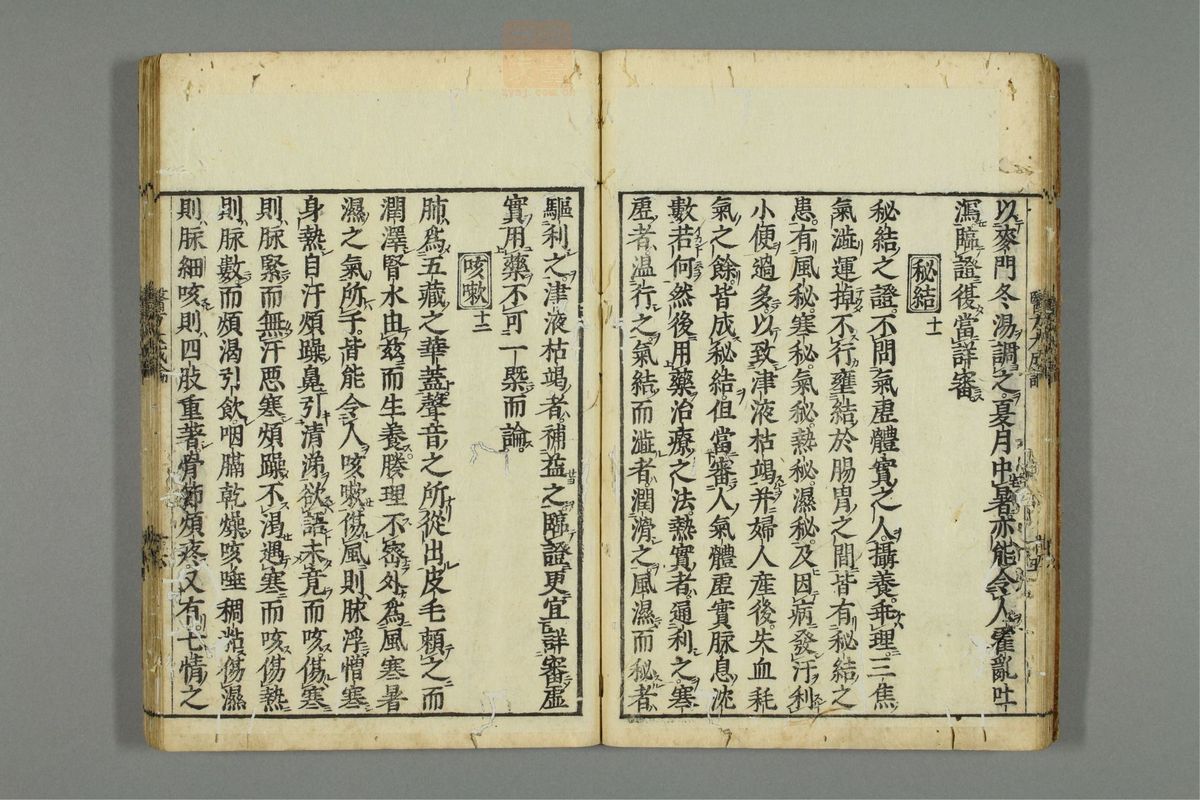 以麥門冬湯調之夏月中暑亦能令人霍亂吐
瀉臨證復當詳審
秘結 十一
秘結之證不問氣虛體實之人攝養乖理三焦
氣澁運掉不行壅結於腸胃之間皆有秘結之
患有風秘寒秘氣秘熱秘濕秘及因病發汗利
小便過多以致津液枯竭并婦人産後失血耗
氣之餘皆成秘結但當審人氣體虛實脉息沈
數若何然後用藥治療之法熱實者通利之寒
虛者温行之氣結而澁者潤滑之風濕而秘者
驅利之津液枯竭者補益之臨證更宜詳審虛
實用藥不可一槩而論
咳嗽 十二
肺爲五藏之華蓋聲音之所從出皮毛頼之而
潤澤腎水由玆而生養腠理不密外爲風寒暑
濕之氣所干皆能令人咳嗽傷風則脉浮憎寒
身熱自汗煩躁鼻引清涕欲語未竟而咳傷寒
則脉緊而無汗惡寒煩躁不渴遇寒而咳傷熱
則脉數而煩渴引飲咽膈乾燥咳唾稠粘傷濕
則脉細咳則四肢重著骨節煩疼又有七情之